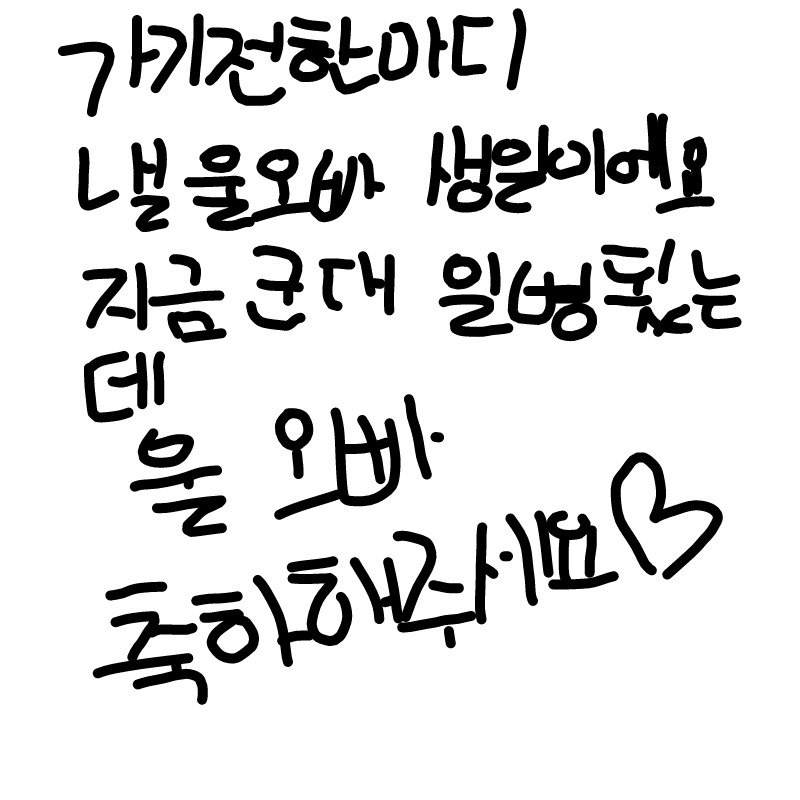 가기전한마디
낼 울오빠 생일이에요
지금 군대 일병됬는
데
울 오빠
축하해주세요♡